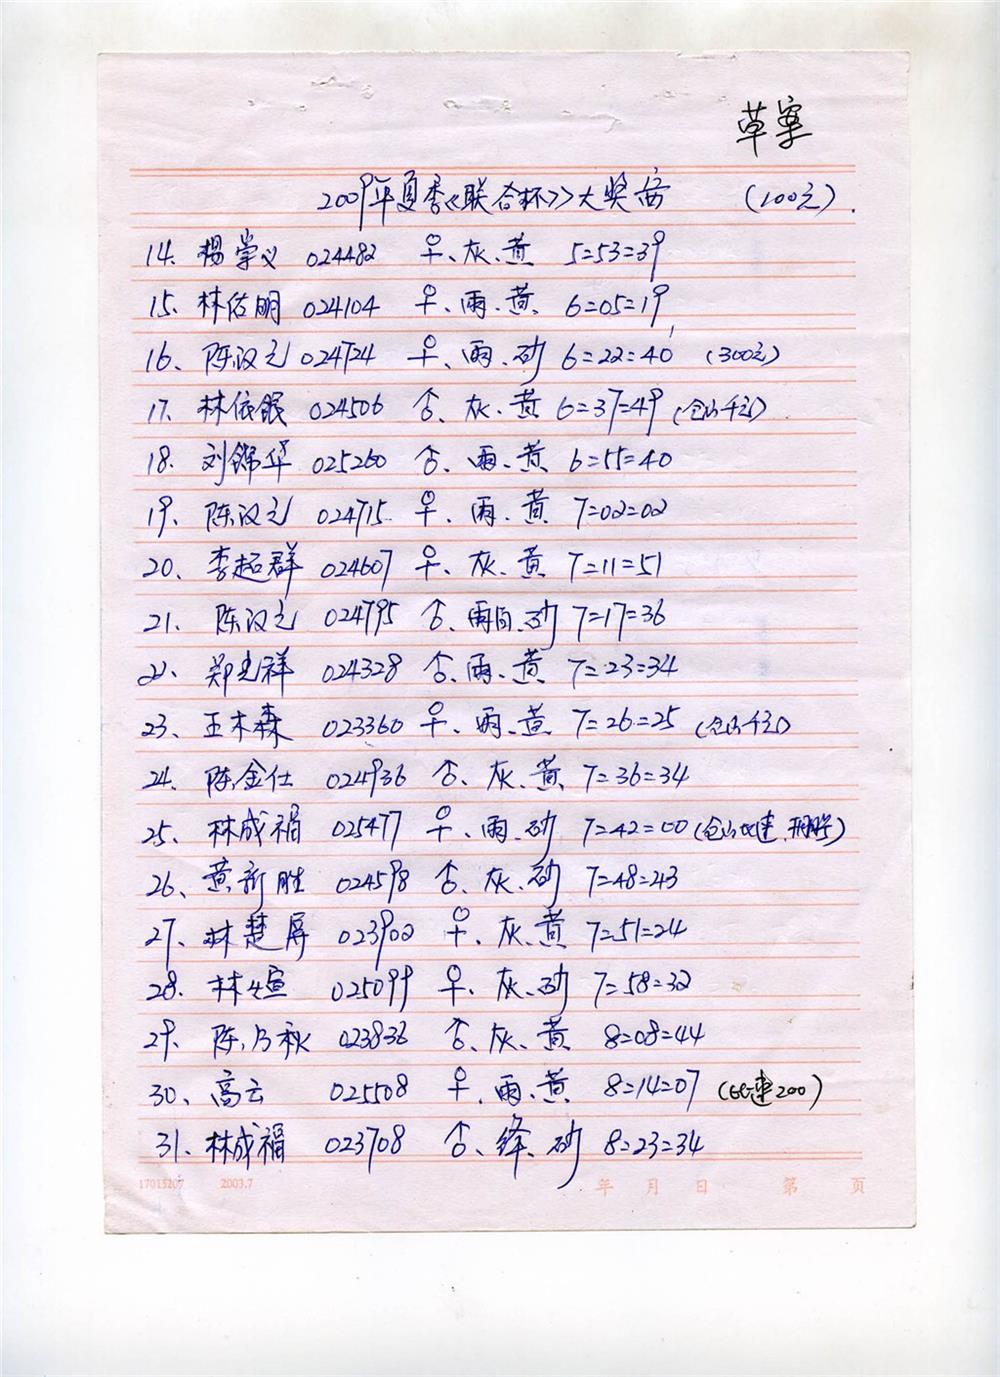 草案
2009年夏季《联合杯》大奖赛 (100元).
14. 杨掌义 024482 ♀、灰、黄 5=53=39
15. 林佑明 024104 ♀、雨、黄 6=05=19
16. 陈汉元 024724 ♀、雨、砂 6=22=40 (300元)
17. 林依银 024506 ♂、灰、黄 6=37=49 (仓山千元)
18. 刘锦华 025260 ♂、雨、黄 6=55=40
19. 陈汉元 024715 ♀、雨、黄 7=02=02
20、李超群 024607 ♀、灰、黄 7=11=51
21. 陈汉元 024795 ♂、雨白、砂 7=17=36
22. 郑光祥 024328 ♂、雨、黄 7=23=34
23、王木森 023360 ♀、雨、黄 7=26=25 (仓山千元)
24、陈金仕 024936 ♂、灰、黄 7=36=34
25. 林成福 025477 ♀、雨、砂 7=42=00 (仓山双速
26、黄新胜 024598 ♂、灰、砂 7=48=43
27、林楚屏 023902 ♀、灰、黄 7=51=24
28. 林 025099 ♀、灰、砂 7=58=32
29、陈乃秋 023836 ♂、灰、黄 8=08=44
30、高云 025508 ♀、雨、黄 8=14=07 (速200)
31、林成福 023708 ♂、绛、砂 8=23=34
17015207 2003.7 年 月 日 第 页